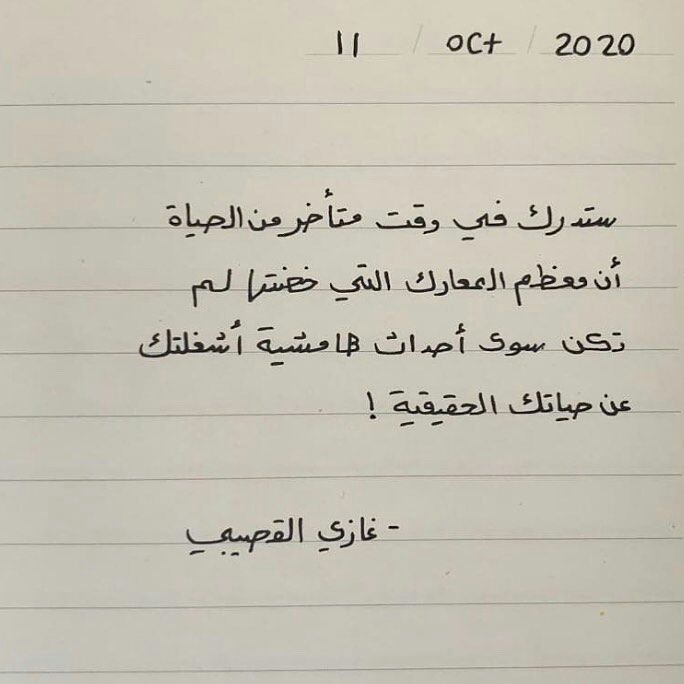 11 / oct / 2020
ستدرك في وقت متأخر من الحياة
أن معظم المعارك التي خضتها لم
تكن سوى أحداث هامشية أشغلتك
عن حياتك الحقيقية !
- غازي القصيبي